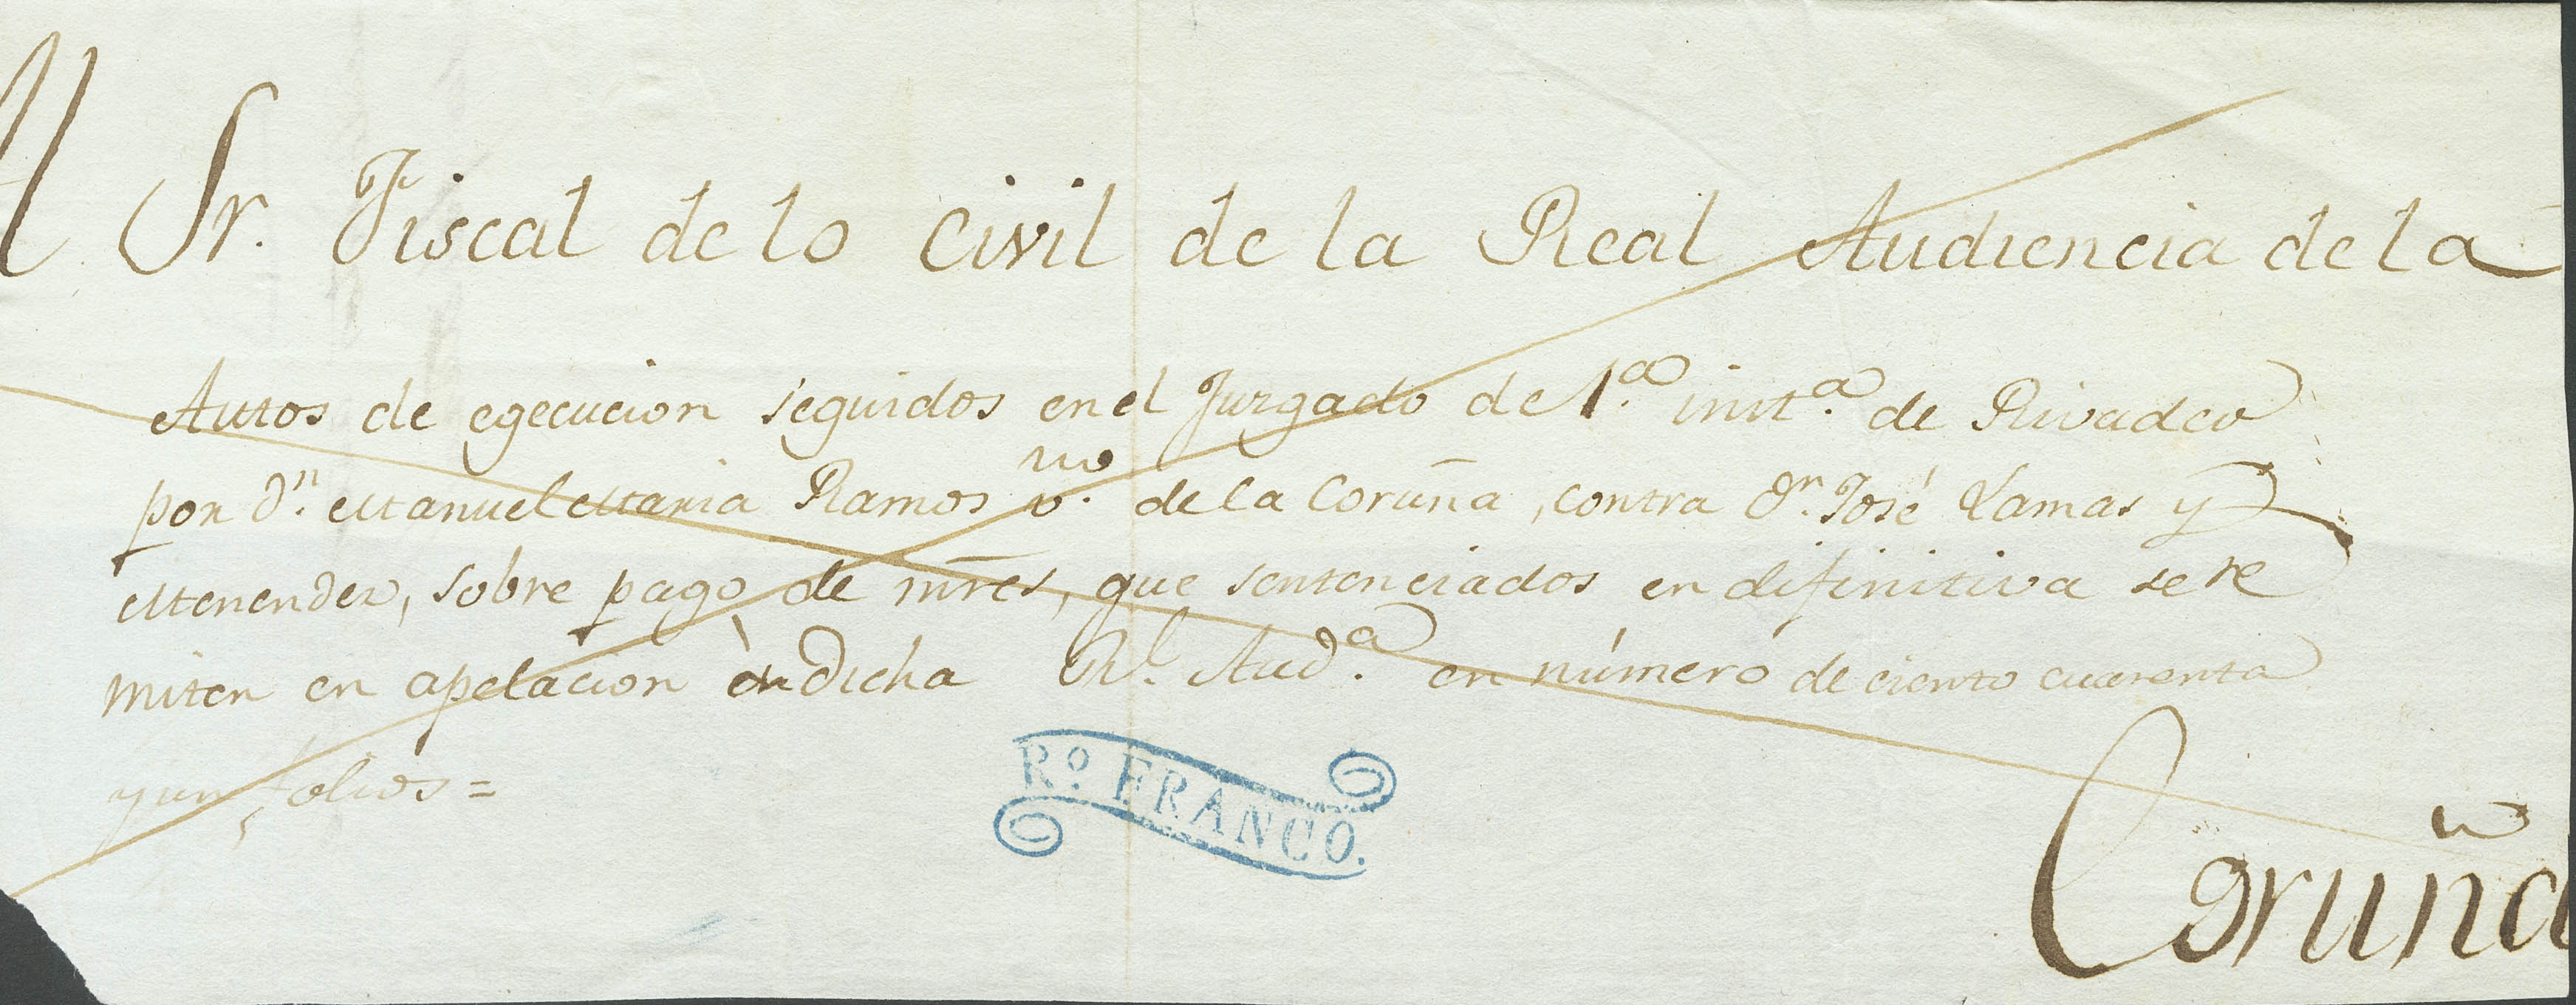 Al Sr. Fiscal de lo Civil de la Real Audiencia de la
Autos de egecucion seguidos en el Juzgado de 1.ª inst.ª de Rivadeo
por D.n Manuel Maria Ramos v.no de la Coruña, contra D.n José Lamas y
Menendez, sobre pago de mrēs, que sentenciados en difinitiva se re
miten en apelacion à dicha R.l Aud.ª en número de ciento cuarenta
y un folios =
Rº. FRANCO.
Coruña